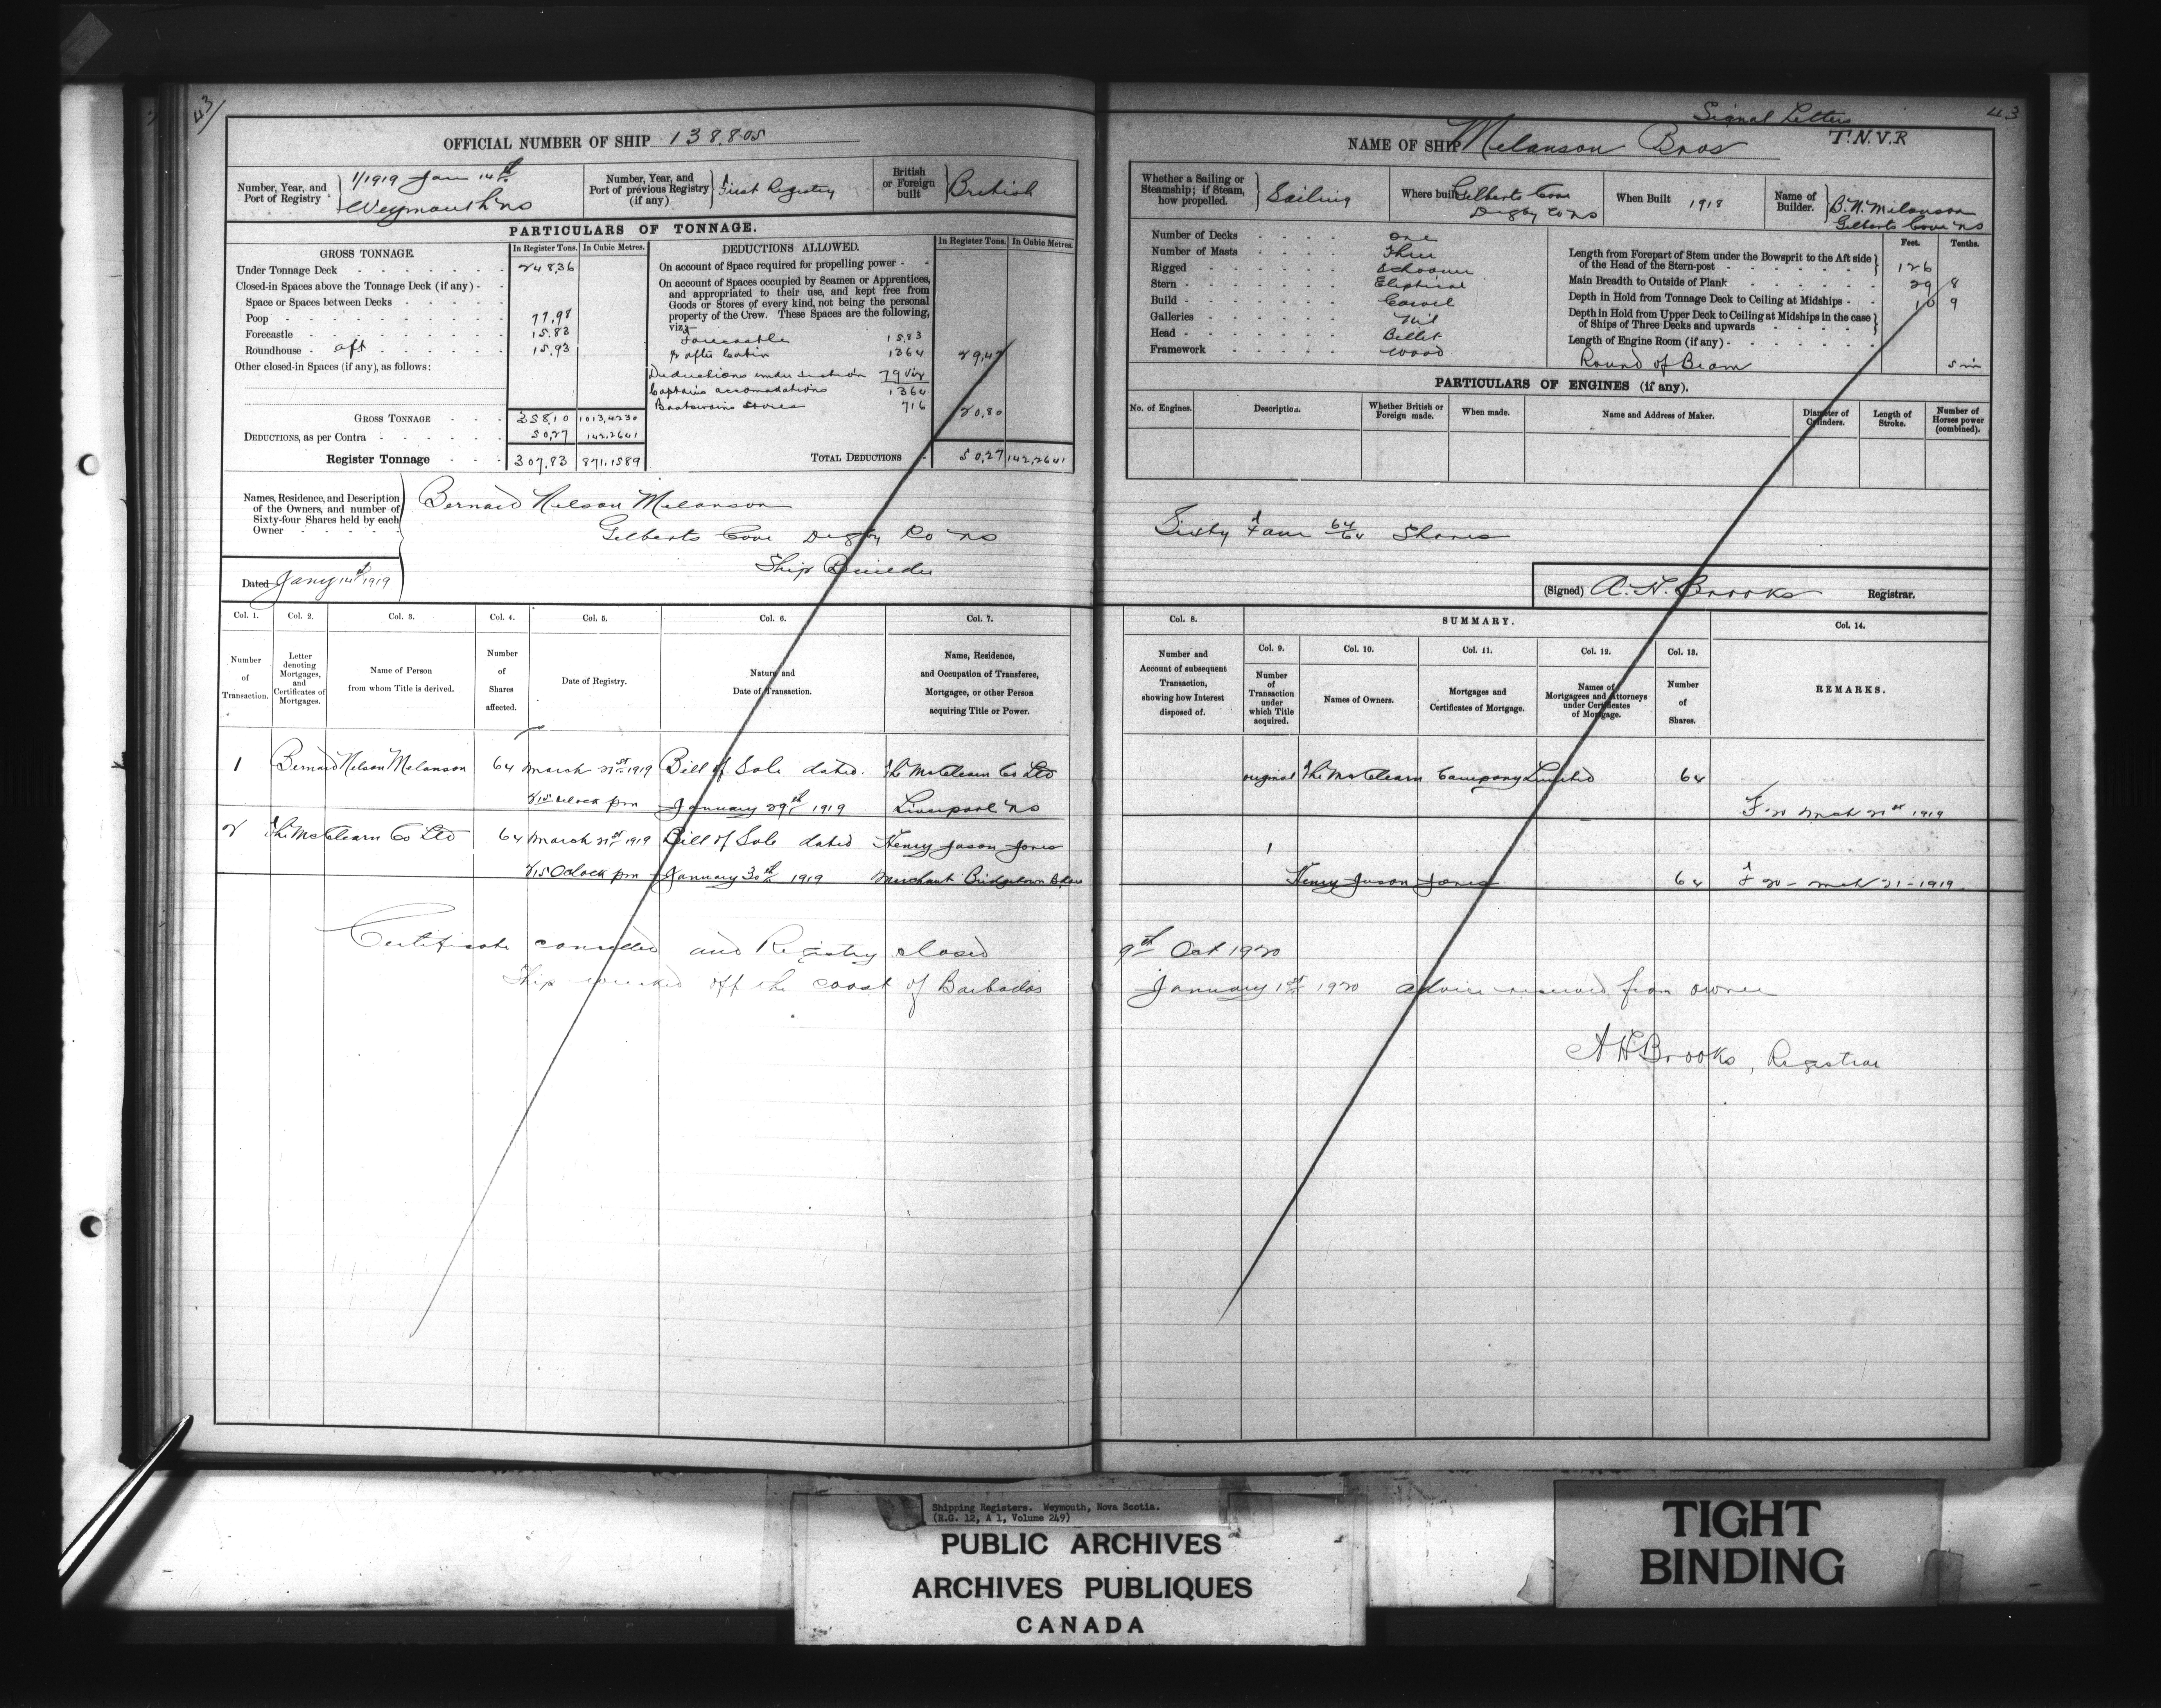 43/
OFFICIAL NUMBER OF SHIP 138,805
Number, Year, and Port of Registry 1/1919 Jan 14th Weymouth NS
Number, Year, and Port of previous Registry (if any) First Registry
British or Foreign built British
PARTICULARS OF TONNAGE.
GROSS TONNAGE In Register Tons. In Cubic Metres.
Under Tonnage Deck 248,36
Closed-in Spaces above the Tonnage Deck (if any)
Space or Spaces between Decks
Poop 77,98
Forecastle 15.83
Roundhouse aft 15,93
Other closed-in Spaces (if any), as follows:
GROSS TONNAGE 358,10 1013,4230
DEDUCTIONS, as per Contra 50,27 142,2641
Register Tonnage 307,83 871,1589
DEDUCTIONS ALLOWED. In Register Tons. In Cubic Metres.
On account of Space required for propelling power
On account of Spaces occupied by Seamen or Apprentices, and appropriated to their use, and kept free from Goods or Stores of every kind, not being the personal property of the Crew. These Spaces are the following, viz:
Forecastle 15,83
after Cabin 1364 29,47
Deductions under section 79 viz
Captains accomodations 1364
Boatswains Stores 716 20,80
TOTAL DEDUCTIONS 50,27 142,2641
Names, Residence, and Description of the Owners, and number of Sixty-four Shares held by each Owner
Bernard Nelson Melanson
Gilberts Cove Digby Co NS
Ship Builder
Dated Jany 14th 1919
Col. 1. Col. 2. Col. 3. Col. 4. Col. 5. Col. 6. Col. 7.
Number of Transaction.
Letter denoting Mortgages, and Certificates of Mortgages.
Name of Person from whom Title is derived.
Number of Shares affected.
Date of Registry.
Nature and Date of Transaction.
Name, Residence, and Occupation of Transferee, Mortgagee, or other Person acquiring Title or Power.
1 Bernard Nelson Melanson 64 March 21st 1919 Bill of Sale dated The McClearn Co Ltd
oclock pm January 29th 1919 Liverpool NS
2 The McClearn Co Ltd 64 March 21st 1919 Bill of Sale dated Henry Jason Jones
Oclock pm January 30th 1919 Merchant Bridgetown
Certificate cancelled and Registry closed
Ship wrecked off the coast of Barbados
Signal Letters
43
NAME OF SHIP Melanson Bros T.N.V.R
Whether a Sailing or Steamship; if Steam, how propelled. Sailing
Where built Gilberts Cove Digby Co NS
When Built 1918
Name of Builder. B.N. Melanson Gilberts Cove NS
Number of Decks One
Number of Masts Three
Rigged Schooner
Stern Eliptical
Build Carvel
Galleries Nil
Head Billet
Framework Wood
Feet. Tenths.
Length from Forepart of Stem under the Bowsprit to the Aft side of the Head of the Stern-post 126
Main Breadth to Outside of Plank 29 8
Depth in Hold from Tonnage Deck to Ceiling at Midships 10 9
Depth in Hold from Upper Deck to Ceiling at Midships in the case of Ships of Three Decks and upwards
Length of Engine Room (if any)
Round of Beam 5 in
PARTICULARS OF ENGINES (if any).
No. of Engines. Description. Whether British or Foreign made. When made. Name and Address of Maker. Diameter of Cylinders. Length of Stroke. Number of Horses power (combined).
Sixty Four 64/64 Shares
(Signed) A. H. Brooks Registrar.
Col. 8. SUMMARY. Col. 14.
Col. 9. Col. 10. Col. 11. Col. 12. Col. 13.
Number and Account of subsequent Transaction, showing how Interest disposed of.
Number of Transaction under which Title acquired.
Names of Owners.
Mortgages and Certificates of Mortgage.
Names of Mortgagees and Attorneys under Certificates of Mortgage.
Number of Shares.
REMARKS.
original The McClearn Company Limited 64
F 20 Mch 21st 1919
1
Henry Jason Jones 64 F 20 - Mch 21 - 1919
9th Oct 1920
January 1st 1920 advice received from owner
A H Brooks, Registrar
Shipping Registers. Weymouth, Nova Scotia.
(R.G. 12, A 1, Volume 249)
PUBLIC ARCHIVES
ARCHIVES PUBLIQUES
CANADA
TIGHT
BINDING